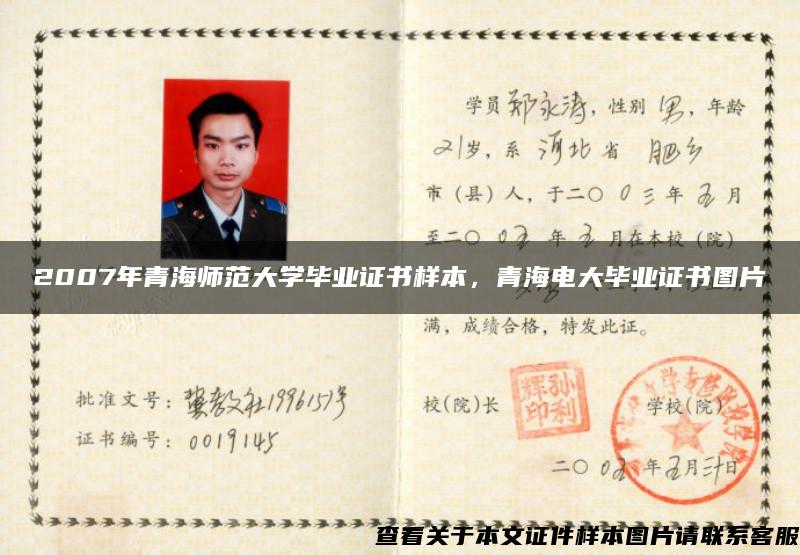 学员郑永涛，性别 男，年龄
21岁，系 河北 省 肥乡
市（县）人，于二〇 0三 年 五 月
至二〇 0五 年 五 月在本校（院）
2007年青海师范大学毕业证书样本，青海电大毕业证书图片
满，成绩合格，特发此证。
批准文号：冀教文社1996157号
证书编号：0019145
校（院）长
孙利辉印
学校（院）
二〇 0五 年五月三十日
查看关于本文证件样本图片请联系客服